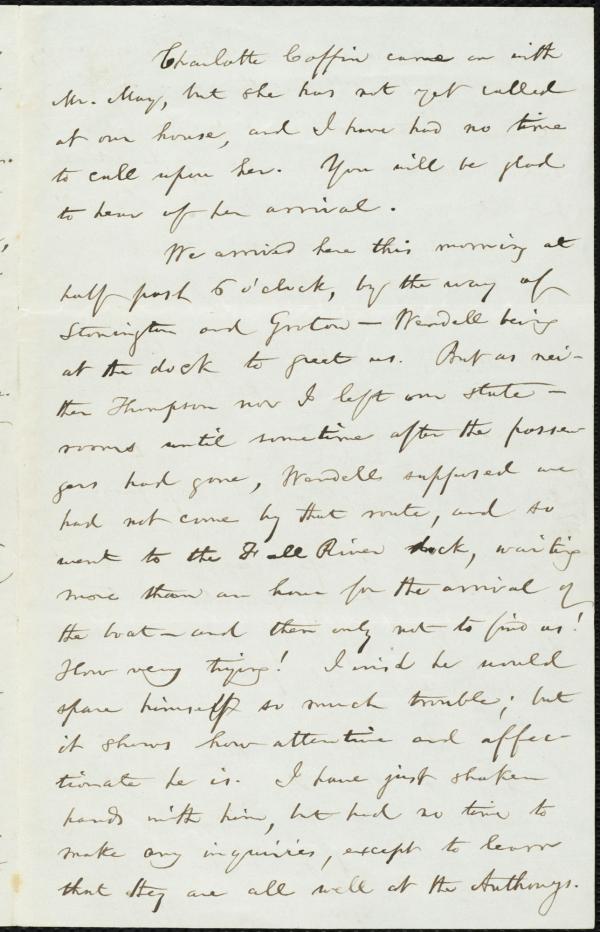 Charlotte Coffin came on with
Mr. May, but she has not yet called
at our house, and I have had no time
to call upon her. You will be glad
to hear of her arrival.
We arrived here this morning at
half past 6 o'clock, by the way of
Stonington and Groton — Wendell being
at the dock to greet us. But as nei-
ther Thompson nor I left our state-
rooms until sometime after the passen
gers had gone, Wendell supposed we
had not come by that route, and so
went to the Fall River dock, waiting
more than an hour for the arrival of
the boat — and then only not to find us!
How very trying! I wish he would
spare himself so much trouble; but
it shows how attentive and affec-
tionate he is. I have just shaken
hands with him, but had no time to
make any inquiries, except to learn
that they are all well at the Anthonys.